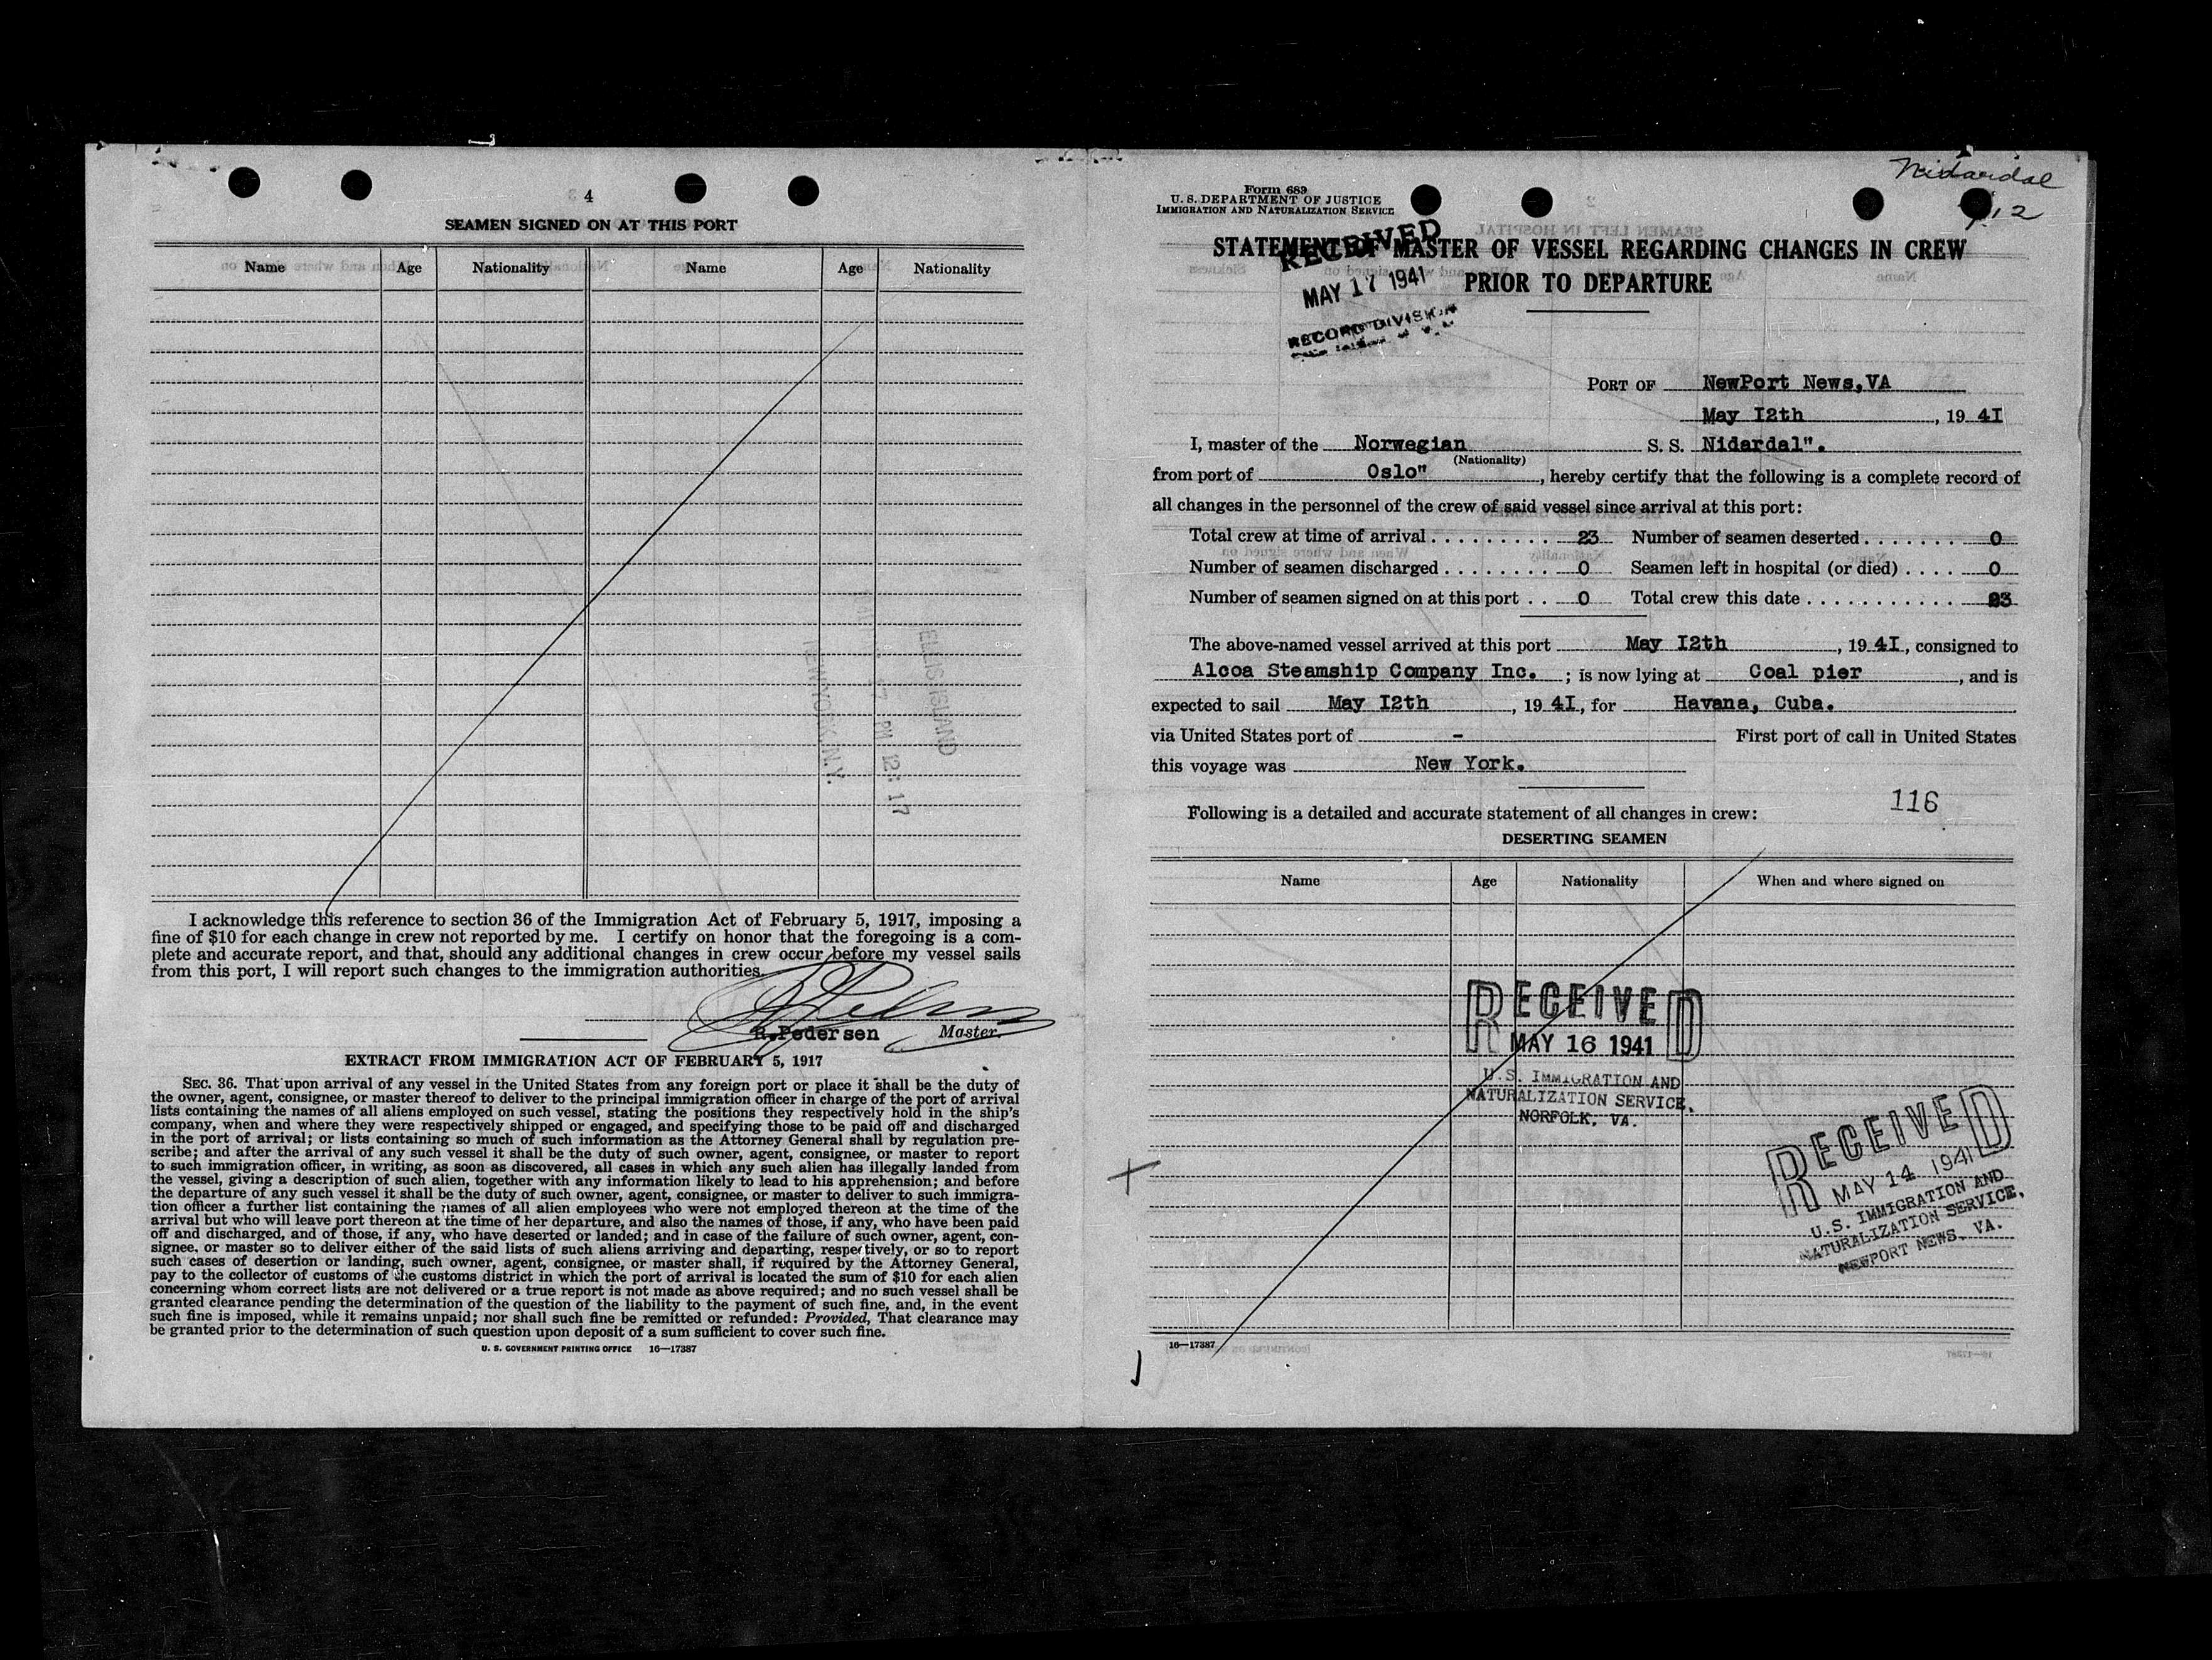 4
SEAMEN SIGNED ON AT THIS PORT
Name Age Nationality Name Age Nationality
ELLIS ISLAND
PM 12:17
NEW YORK, N.Y.
I acknowledge this reference to section 36 of the Immigration Act of February 5, 1917, imposing a
fine of $10 for each change in crew not reported by me. I certify on honor that the foregoing is a com-
plete and accurate report, and that, should any additional changes in crew occur before my vessel sails
from this port, I will report such changes to the immigration authorities.
R.Pedersen Master.
EXTRACT FROM IMMIGRATION ACT OF FEBRUARY 5, 1917
SEC. 36. That upon arrival of any vessel in the United States from any foreign port or place it shall be the duty of
the owner, agent, consignee, or master thereof to deliver to the principal immigration officer in charge of the port of arrival
lists containing the names of all aliens employed on such vessel, stating the positions they respectively hold in the ship's
company, when and where they were respectively shipped or engaged, and specifying those to be paid off and discharged
in the port of arrival; or lists containing so much of such information as the Attorney General shall by regulation pre-
scribe; and after the arrival of any such vessel it shall be the duty of such owner, agent, consignee, or master to report
to such immigration officer, in writing, as soon as discovered, all cases in which any such alien has illegally landed from
the vessel, giving a description of such alien, together with any information likely to lead to his apprehension; and before
the departure of any such vessel it shall be the duty of such owner, agent, consignee, or master to deliver to such immigra-
tion officer a further list containing the names of all alien employees who were not employed thereon at the time of the
arrival but who will leave port thereon at the time of her departure, and also the names of those, if any, who have been paid
off and discharged, and of those, if any, who have deserted or landed; and in case of the failure of such owner, agent, con-
signee, or master so to deliver either of the said lists of such aliens arriving and departing, respectively, or so to report
such cases of desertion or landing, such owner, agent, consignee, or master shall, if required by the Attorney General,
pay to the collector of customs of the customs district in which the port of arrival is located the sum of $10 for each alien
concerning whom correct lists are not delivered or a true report is not made as above required; and no such vessel shall be
granted clearance pending the determination of the question of the liability to the payment of such fine, and, in the event
such fine is imposed, while it remains unpaid; nor shall such fine be remitted or refunded: Provided, That clearance may
be granted prior to the determination of such question upon deposit of a sum sufficient to cover such fine.
U. S. GOVERNMENT PRINTING OFFICE 16—17387
Nidardal
Form 689
U. S. DEPARTMENT OF JUSTICE
IMMIGRATION AND NATURALIZATION SERVICE
STATEMENT OF MASTER OF VESSEL REGARDING CHANGES IN CREW
PRIOR TO DEPARTURE
RECEIVED
MAY 17 1941
RECORD DIVISION
PORT OF NewPort News,VA
May I2th, 19 4I
I, master of the Norwegian S. S. Nidardal".
(Nationality)
from port of Oslo", hereby certify that the following is a complete record of
all changes in the personnel of the crew of said vessel since arrival at this port:
Total crew at time of arrival . . . . . . . . . 23 Number of seamen deserted . . . . . . . 0
Number of seamen discharged . . . . . . . . 0 Seamen left in hospital (or died) . . . . 0
Number of seamen signed on at this port . . 0 Total crew this date . . . . . . . . . . . . 23
The above-named vessel arrived at this port May I2th, 19 4I, consigned to
Alcoa Steamship Company Inc. ; is now lying at Coal pier, and is
expected to sail May I2th, 19 4I, for Havana, Cuba.
via United States port of - First port of call in United States
this voyage was New York.
116
Following is a detailed and accurate statement of all changes in crew:
DESERTING SEAMEN
Name Age Nationality When and where signed on
RECEIVED
MAY 16 1941
U.S. IMMIGRATION AND
NATURALIZATION SERVICE,
NORFOLK, VA.
RECEIVED
MAY 14 1941
U.S. IMMIGRATION AND
NATURALIZATION SERVICE,
NEWPORT NEWS, VA.
16—17387